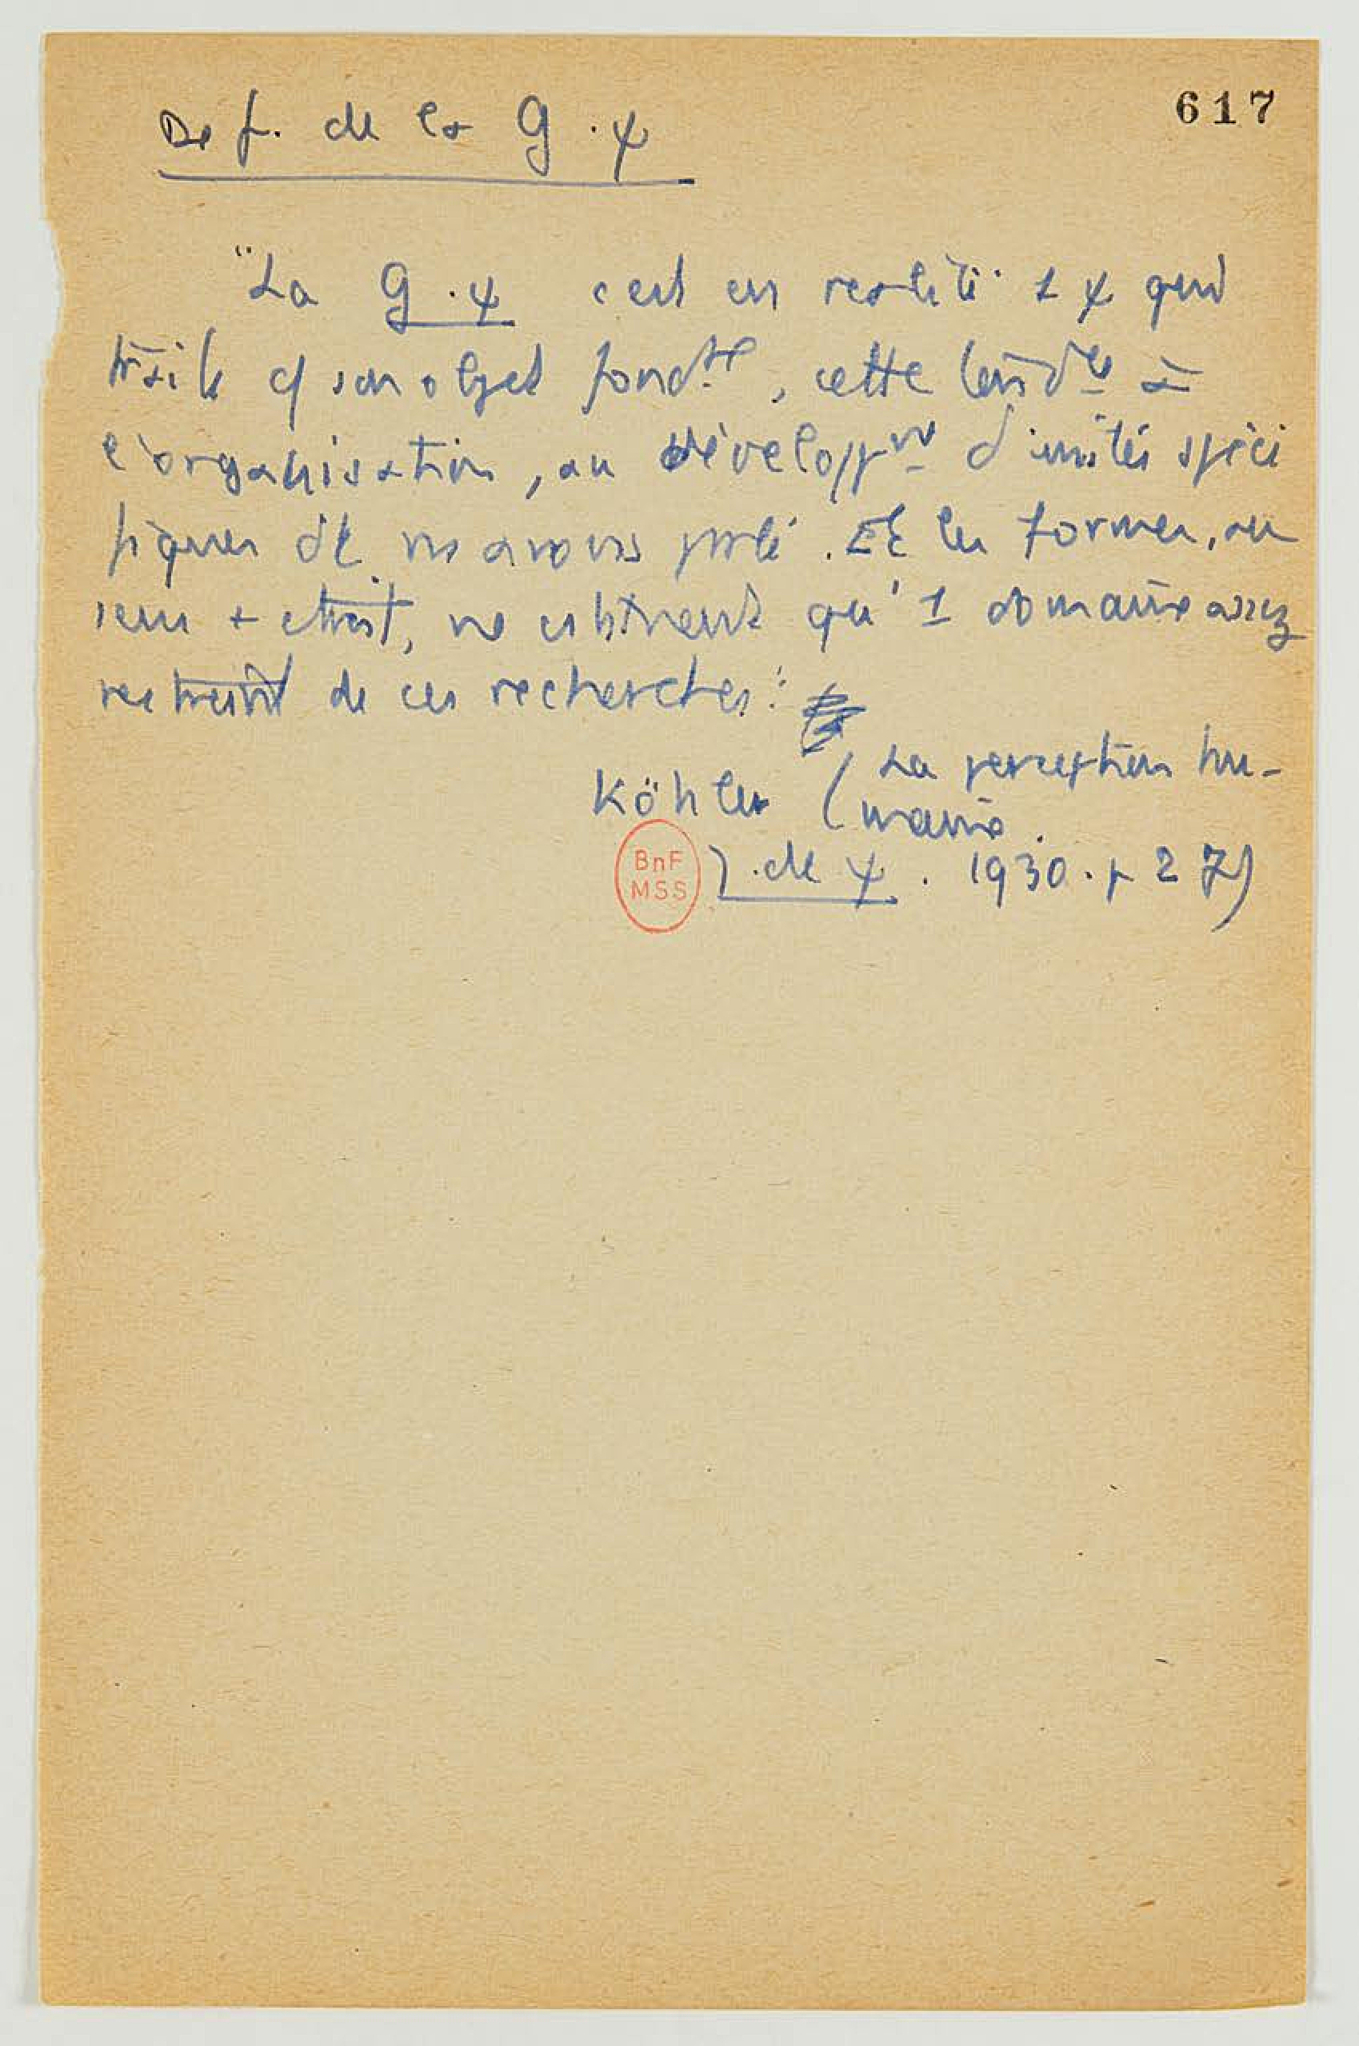 617
Def. de la G.ψ
"La G.ψ c'est en réalité 1 ψ qui
traite c/ son objet fondtal, cette tendce à
l'organisation, au développmt d'unités spéci
fiques dt ns avons parlé. Et les formes, au
sens + étroit, ne constituent qu'1 domaine assez
restreint de ces recherches."
Köhler (La perception hu-
maine.
J. de ψ. 1930. p 27)
BnF
MSS